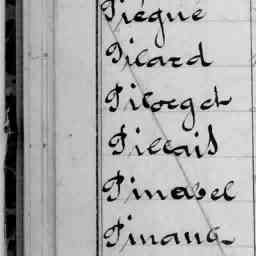 Piégue
Picard
Picorget
Pillais
Pinabel
Pinang